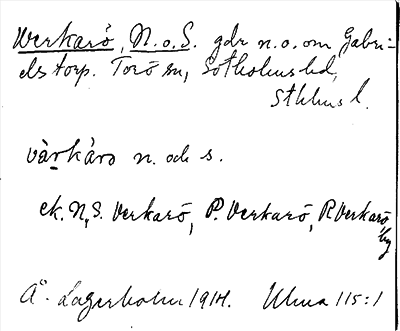 Verkarö, N. o. S. gdr n. o. om Gabri=
elstorp. Torö sn, Sotholms hd,
Sthlms l.
vàrkårọ n. och s.
ek. N, S. Verkarö, P. Verkarö, R Verkarö
by
Å. Lagerholm 1914. Ulma 115:1